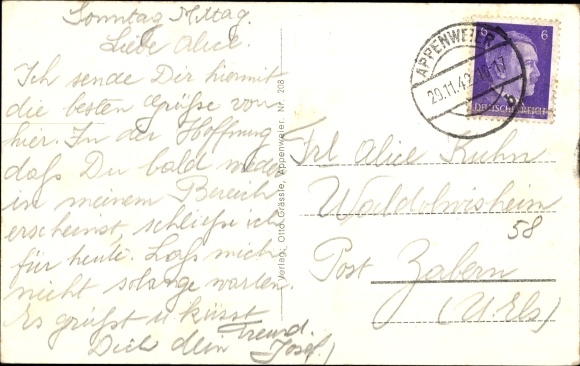 Sonntag Mittag.
Liebe Alice.
Ich sende Dir hiermit
die besten Grüße von
hier. In der Hoffnung
daß Du bald wieder
in meinem Bereich
erscheinst, schließe ich
für heute. Laß mich
nicht solange warten
Es grüßt u küsst
Dich dein Freund.
Josef.
Verlag: Otto Grässle, Appenweier. Nr. 208
APPENWEIER
29.11.42
b
6
DEUTSCHES REICH
Frl Alice Kuhn
Waldolwisheim
58
Post Zabern
(U. Els)